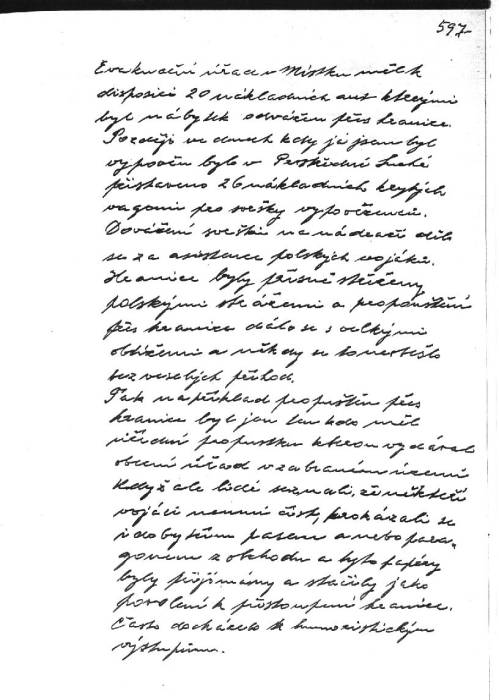 597
Evakuační úřad v Místku měl k
disposici 20 nákladních aut kterými
byl nábytek odvážen přes hranice.
Později ve dnech kdy já jsem byl
vypovězen bylo v Prostřední Suché
přistaveno 26 nákladních krytých
vagonů pro svršky vypovězenců.
Dovážení svršků na nádraží dělo
se za asistence polských vojáků.
Hranice byly přísně střeženy
polskými strážemi a propouštění
přes hranice dálo se s velkými
obtížemi a někdy se to neobešlo
bez veselých příhod.
Tak na příklad propuštěn přes
hranice byl jen ten kdo měl
úřední propustku kterou vydával
obecní úřad v zabraném území
když ale lidé seznali, že někteří
vojáci neumí číst, prokázali se
i dobytčím pasem anebo para-
gonem z obchodu a tyto papíry
byly přijímány a stačily jako
povolení k přestoupení hranice.
Často docházelo k humoristickým
výstupům.